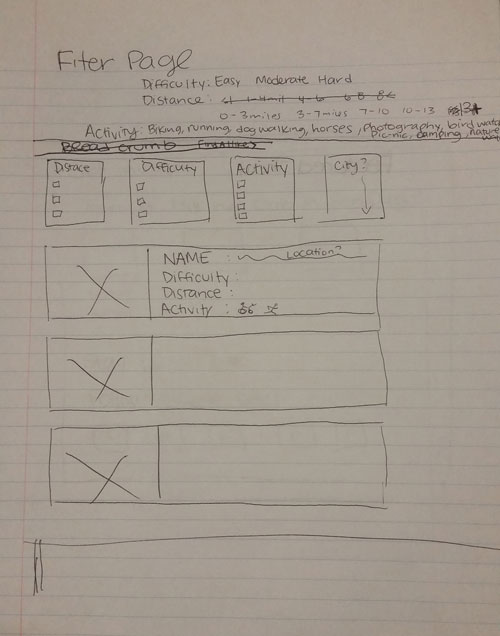 Fiter Page
Difficulty: Easy Moderate Hard
Distance:
0-3miles 3-7mius 7-10 10-13 13+
Activity: Biking, running, dog walking, horses, photography, bird watc
picnic, camping, nature
Bread crumb
Distace Difficuty Activity City?
NAME : Location?
Difficulty :
Distance :
Activity :